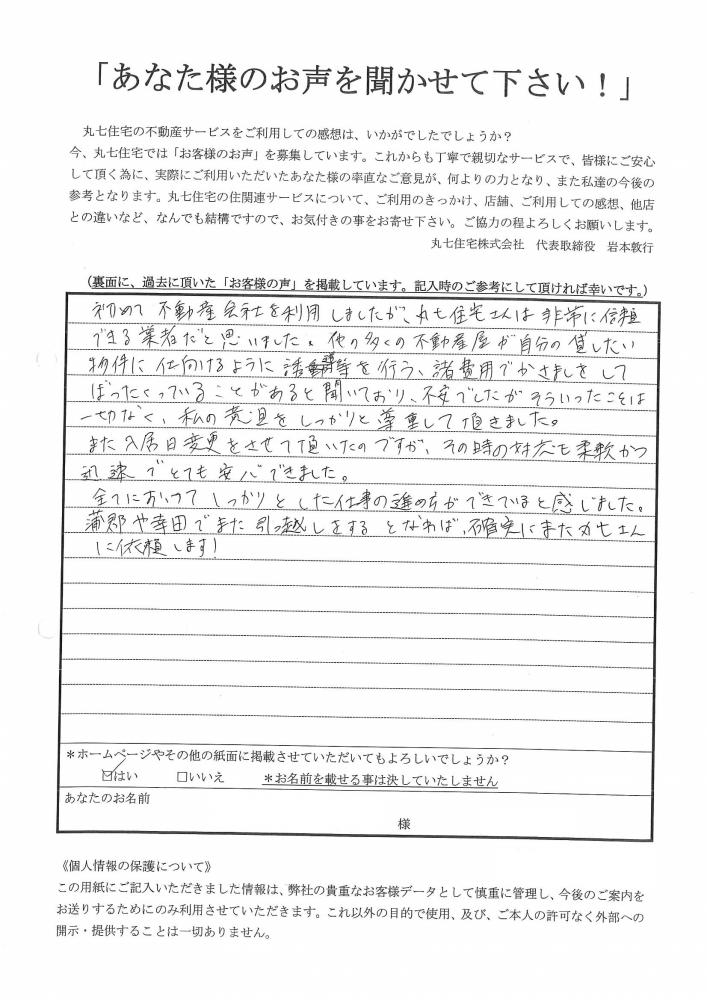 「あなた様のお声を聞かせて下さい！」
丸七住宅の不動産サービスをご利用しての感想は、いかがでしたでしょうか？
今、丸七住宅では「お客様のお声」を募集しています。これからも丁寧で親切なサービスで、皆様にご安心
して頂く為に、実際にご利用いただいたあなた様の率直なご意見が、何よりの力となり、また私達の今後の
参考となります。丸七住宅の住関連サービスについて、ご利用のきっかけ、店舗、ご利用しての感想、他店
との違いなど、なんでも結構ですので、お気付きの事をお寄せ下さい。ご協力の程よろしくお願いします。
丸七住宅株式会社　代表取締役　岩本敦行
（裏面に、過去に頂いた「お客様の声」を掲載しています。記入時のご参考にして頂ければ幸いです。）
初めて不動産会社を利用しましたが、丸七住宅さんは非常に信頼
できる業者だと思いました。他の多くの不動産屋が自分の貸したい
物件に仕向けるように誘導等を行う、諸費用でかさましをして
ぼったくっていることがあると聞いており、不安でしたがそういったことは
一切なく、私の意見をしっかりと尊重して頂きました。
また入居日変更をさせて頂いたのですが、その時の対応も柔軟かつ
迅速でとても安心できました。
全てにおいてしっかりとした仕事の進め方ができていると感じました。
蒲郡や幸田でまた引っ越しをするとなれば、確実にまた丸七さん
に依頼します!
＊ホームページやその他の紙面に掲載させていただいてもよろしいでしょうか？
☑はい　□いいえ　＊お名前を載せる事は決していたしません
あなたのお名前
様
《個人情報の保護について》
この用紙にご記入いただきました情報は、弊社の貴重なお客様データとして慎重に管理し、今後のご案内を
お送りするためにのみ利用させていただきます。これ以外の目的で使用、及び、ご本人の許可なく外部への
開示・提供することは一切ありません。